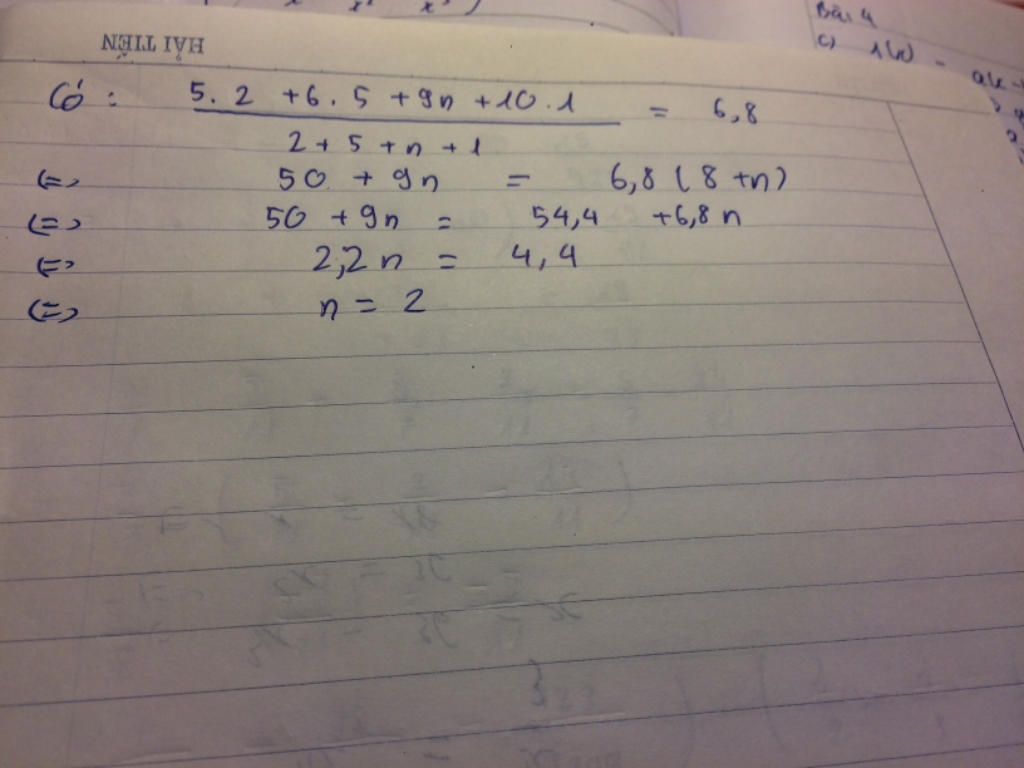 HẢI TIẾN
Bài 4
c)
Có : 5.2 + 6.5 + 9n + 10.1 = 6,8
2 + 5 + n + 1
(=) 50 + 9n = 6,8 (8 + n)
(=) 50 + 9n = 54,4 + 6,8n
(=) 2,2n = 4,4
(=) n = 2